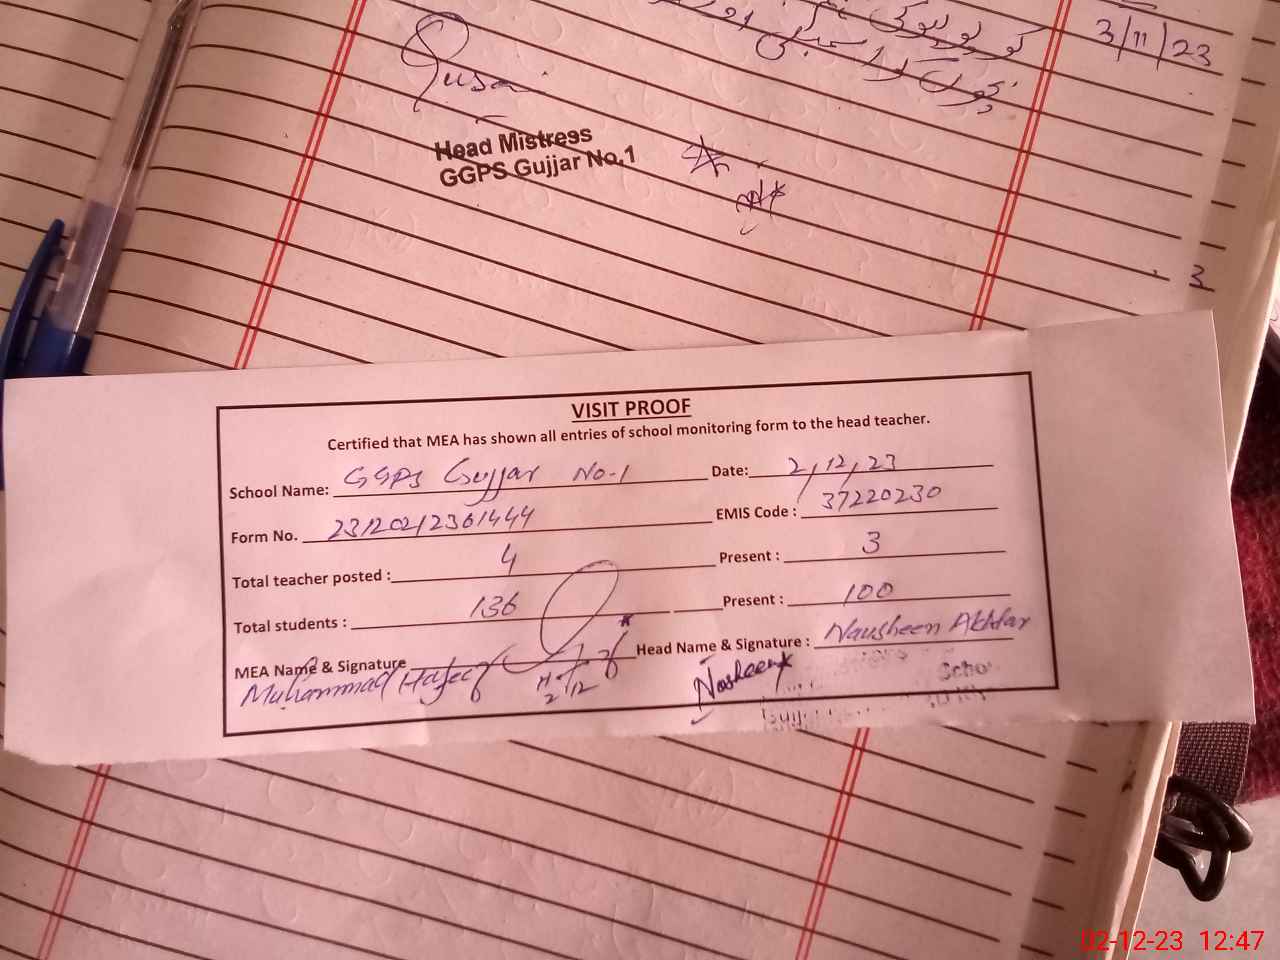 3/11/23
Head Mistress
GGPS Gujjar No.1
3
VISIT PROOF
Certified that MEA has shown all entries of school monitoring form to the head teacher.
School Name: GGPS Gujjar No-1 Date: 2/12/23
Form No. 23120212361444 EMIS Code : 37220230
Total teacher posted : 4 Present : 3
Total students : 136 Present : 100
MEA Name & Signature Head Name & Signature : Nausheen Akhtar
Muhammad Hafeez
2/12
Nosheen
Scho
02-12-23 12:47